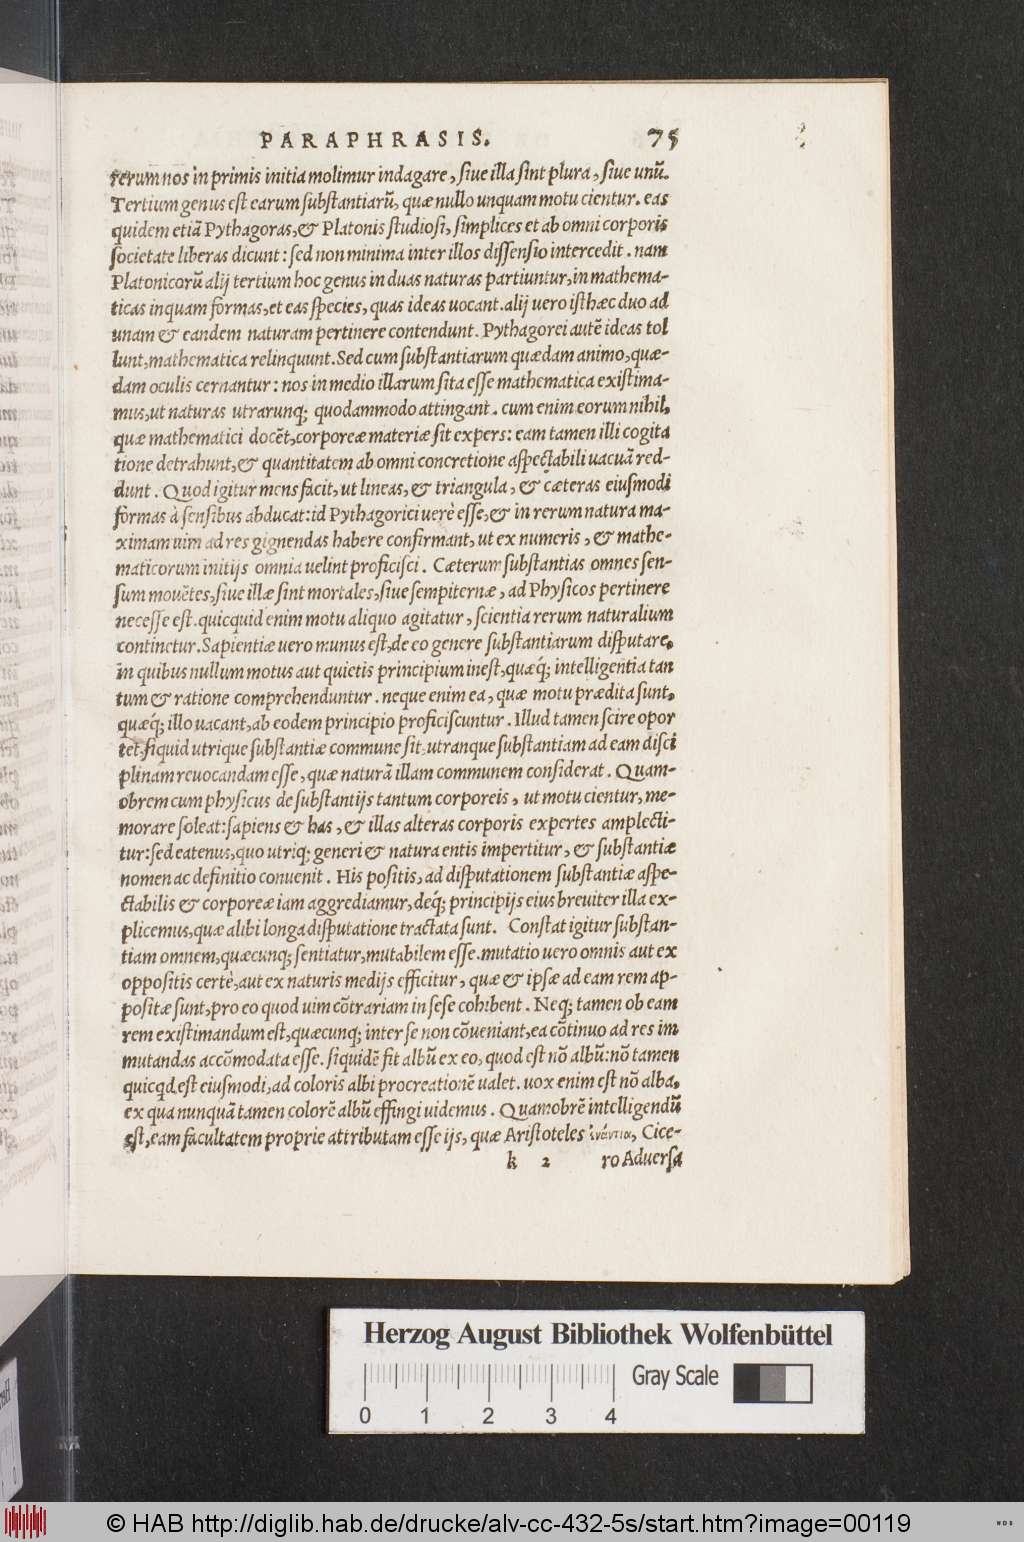 PARAPHRASIS. 75
rerum nos in primis initia molimur indagare, siue illa sint plura, siue unũ.
Tertium genus est earum substantiarũ, quæ nullo unquam motu cientur. eas
quidem etiã Pythagoras, & Platonis studiosi, simplices et ab omni corporis
societate liberas dicunt: sed non minima inter illos dissensio intercedit. nam
Platonicorũ alij tertium hoc genus in duas naturas partiuntur, in mathema-
ticas inquam formas, et eas species, quas ideas uocant. alij uero isthæc duo ad
unam & eandem naturam pertinere contendunt. Pythagorei autẽ ideas tol
lunt, mathematica relinquunt. Sed cum substantiarum quædam animo, quæ-
dam oculis cernantur: nos in medio illarum sita esse mathematica existima-
mus, ut naturas utrarunq; quodammodo attingant. cum enim eorum nihil,
quæ mathematici docẽt, corporeæ materiæ sit expers: eam tamen illi cogita
tione detrahunt, & quantitatem ab omni concretione aspectabili uacuã red-
dunt. Quod igitur mens facit, ut lineas, & triangula, & cæteras eiusmodi
formas à sensibus abducat: id Pythagorici uerè esse, & in rerum natura ma-
ximam uim ad res gignendas habere confirmant, ut ex numeris, & mathe-
maticorum initijs omnia uelint proficisci. Cæterum substantias omnes sen-
sum mouẽtes, siue illæ sint mortales, siue sempiternæ, ad Physicos pertinere
necesse est. quicquid enim motu aliquo agitatur, scientia rerum naturalium
continetur. Sapientiæ uero munus est, de eo genere substantiarum disputare,
in quibus nullum motus aut quietis principium inest, quæq́; intelligentia tan
tum & ratione comprehenduntur. neque enim ea, quæ motu prædita sunt,
quæq́; illo uacant, ab eodem principio proficiscuntur. Illud tamen scire opor
tet, siquid utrique substantiæ commune sit, utranque substantiam ad eam disci
plinam reuocandam esse, quæ naturã illam communem considerat. Quam-
obrem cum physicus de substantijs tantum corporeis, ut motu cientur, me-
morare soleat: sapiens & has, & illas alteras corporis expertes amplecti-
tur: sed eatenus, quo utriq; generi & natura entis impertitur, & substantiæ
nomen ac definitio conuenit. His positis, ad disputationem substantiæ aspe-
ctabilis & corporeæ iam aggrediamur, deq́; principijs eius breuiter illa ex-
plicemus, quæ alibi longa disputatione tractata sunt. Constat igitur substan-
tiam omnem, quæcunq; sentiatur, mutabilem esse. mutatio uero omnis aut ex
oppositis certè, aut ex naturis medijs efficitur, quæ & ipsæ ad eam rem ap-
positæ sunt, pro eo quod uim cõtrariam in sese cohibent. Neq; tamen ob eam
rem existimandum est, quæcunq; inter se non cõueniant, ea cõtinuo ad res im
mutandas accõmodata esse. siquidẽ fit albũ ex eo, quod est nõ albũ: nõ tamen
quicqd est eiusmodi, ad coloris albi procreationẽ ualet. uox enim est nõ alba,
ex qua nunquã tamen colorẽ albũ effingi uidemus. Quamobrẽ intelligendũ
est, eam facultatem proprie attributam esse ijs, quæ Aristoteles ἐνάντια, Cice-
k 2 ro Aduersa
Herzog August Bibliothek Wolfenbüttel
Gray Scale
0 1 2 3 4
© HAB http://diglib.hab.de/drucke/alv-cc-432-5s/start.htm?image=00119